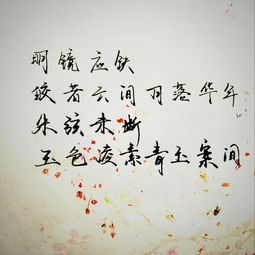 明镜应缺
皎若云间月落华年
朱弦未断
五色凌素青玉案间